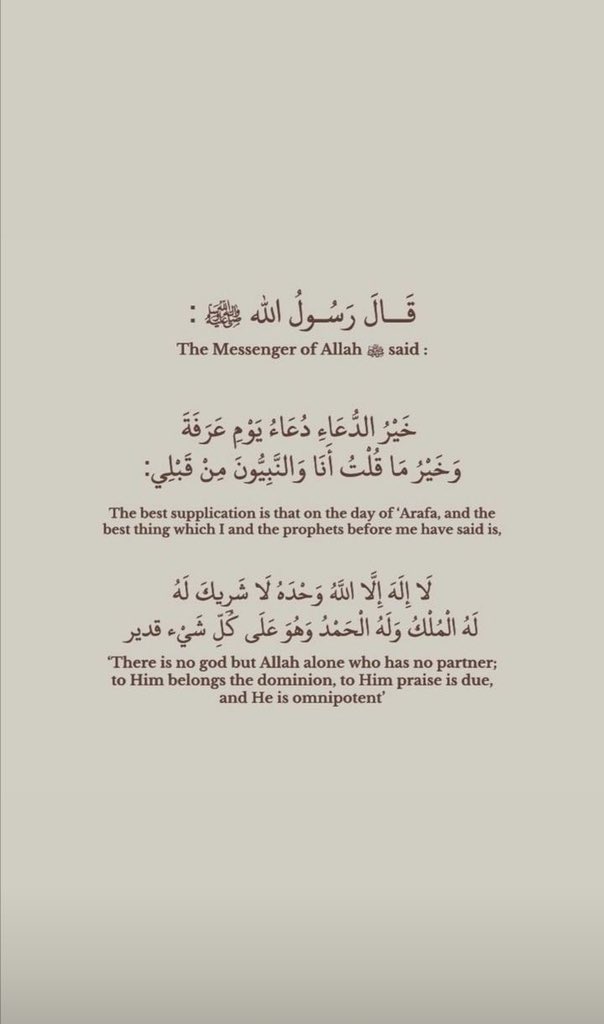 قَـــالَ رَسُــولُ الله ﷺ :
The Messenger of Allah ﷺ said :
خَيْرُ الدُّعَاءِ دُعَاءُ يَوْمِ عَرَفَةَ
وَخَيْرُ مَا قُلْتُ أَنَا وَالنَّبِيُّونَ مِنْ قَبْلِي:
The best supplication is that on the day of ‘Arafa, and the
best thing which I and the prophets before me have said is,
لَا إِلَهَ إِلَّا اللَّهُ وَحْدَهُ لَا شَرِيكَ لَهُ
لَهُ الْمُلْكُ وَلَهُ الْحَمْدُ وَهُوَ عَلَى كُلِّ شَيْء قدير
‘There is no god but Allah alone who has no partner;
to Him belongs the dominion, to Him praise is due,
and He is omnipotent’